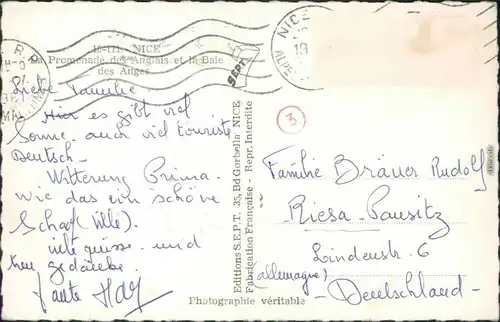 10-111. NICE
La Promenade des Anglais et la Baie
des Anges
NICE
Liebe Familie
Hier es gibt viel
Sonne, auch viel touriste
Deutsch-
Witterung Prima.
wie das ein schöne
viele grüsse und
Editions S.E.P.T. 35, Bd Gorbella NICE
Fabrication Française - Repr. Interdite
3
Familie Bräuer Rudolf
Riesa-Pausitz
Lindenstr. 6
(allemagne)
- Deutschland -
Photographie véritable